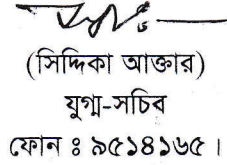 (সিদ্দিকা আক্তার)
যুগ্ম-সচিব
ফোন ঃ ৯৫১৪১৬৫।